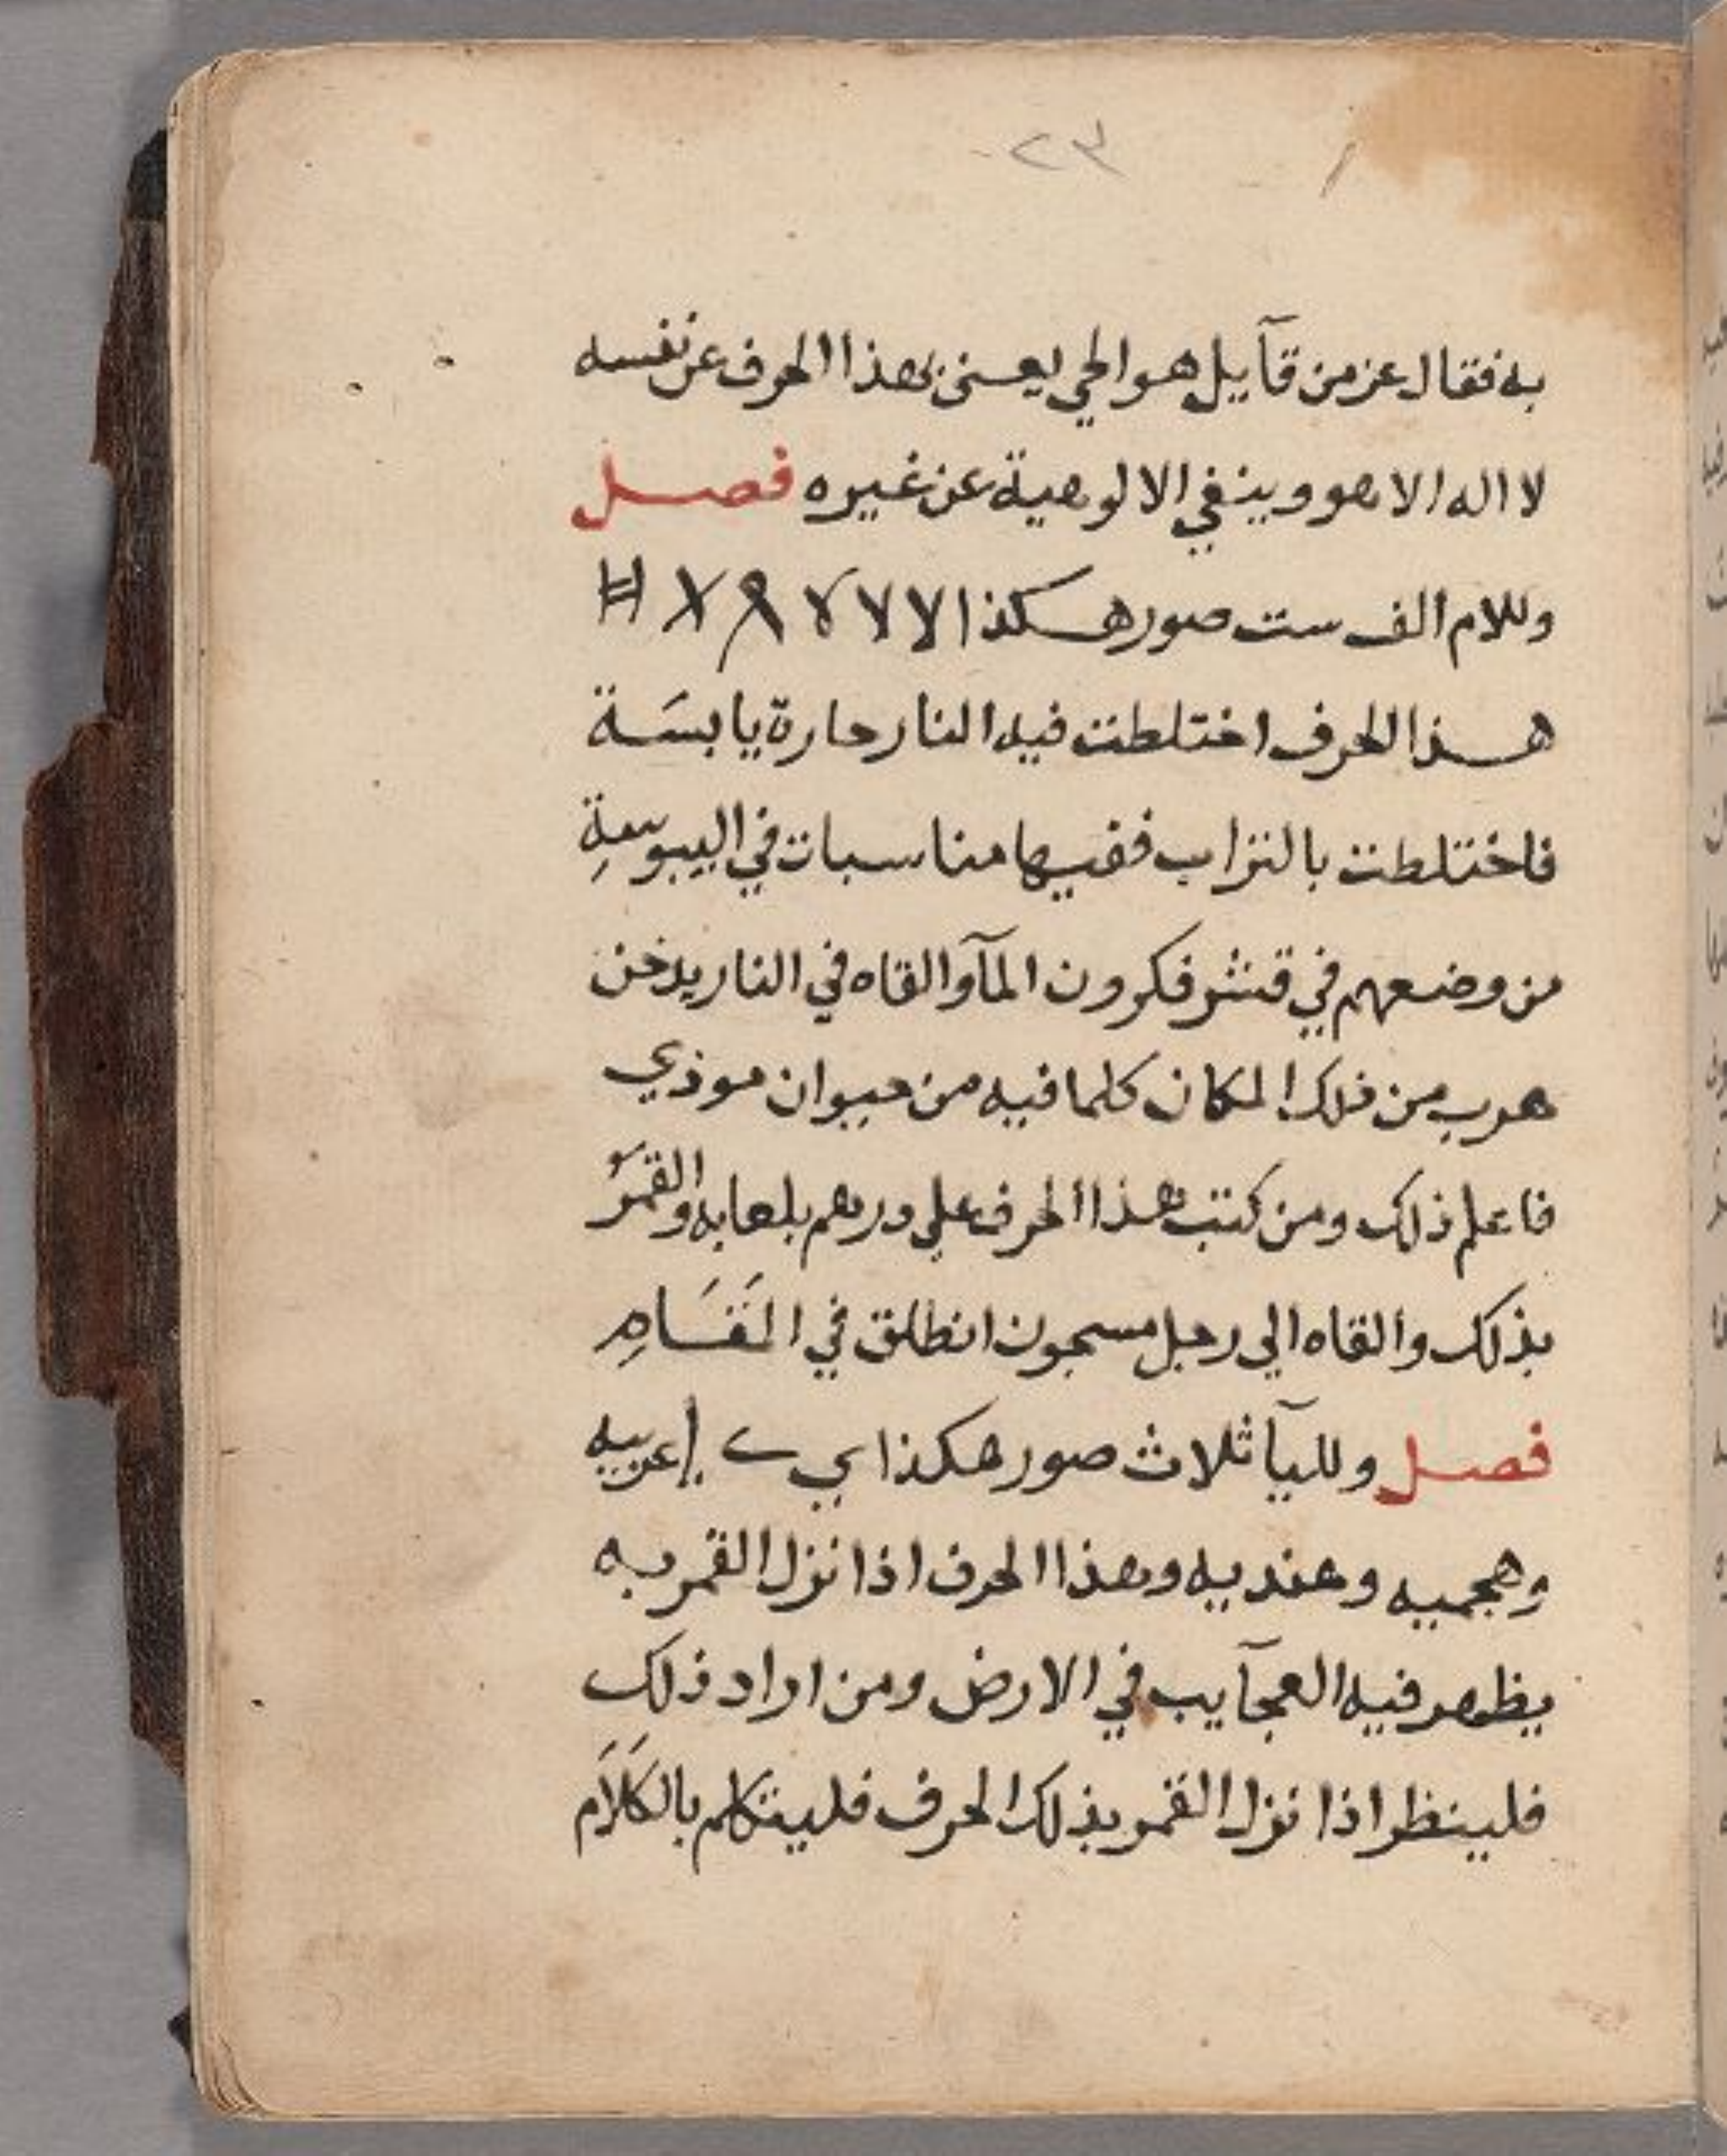 ٢٣
به فقال عز من قآيل هو الحي يعني بهذا الحرف عن نفسه
لا اله الا هو وينفي الالوهية عن غيره فصل
وللام الف ست صور هكذا لا لا لا
هذا الحرف اختلطت فيه النار حارة يابسَة
فاختلطت بالتراب ففيها مناسبات في اليبوسة
من وضعهم في قشر فكرون المآ والقاه في النار يدخن
هرب من ذلك المكان كلما فيه من حيوان موذي
فاعلم ذلك ومن كتب هذا الحرف علي درهم بلعابه والقمر
بذلك والقاه الي رجل مسجون انطلق في
فصل ولليآ ثلاث صور هكذا ي عربيه
وعجميه وهنديه وهذا الحرف اذا نزل القمر به
يظهر فيه العجآيب في الارض ومن اراد ذلك
فلينظر اذا نزل القمر بذلك الحرف فليتكلم بالكَلَام